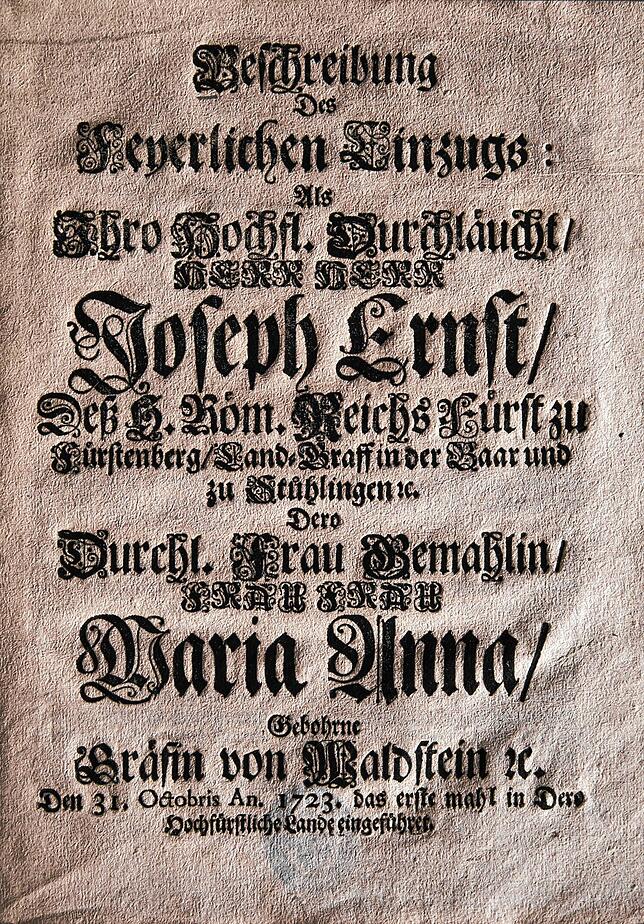 Beschreibung
Des
Feyerlichen Einzugs:
Als
Ihro Hochfl. Durchläucht/
HERR HERR
Joseph Ernst/
Deß H. Röm. Reichs Fürst zu
Fürstenberg/Land-Graff in der Baar und
zu Stühlingen ꝛc.
Dero
Durchl. Frau Gemahlin/
FRAU FRAU
Maria Anna/
Gebohrne
Gräfin von Waldstein ꝛc.
Den 31. Octobris An. 1723. das erste mahl in Dero
Hochfürstliche Lande eingeführet.